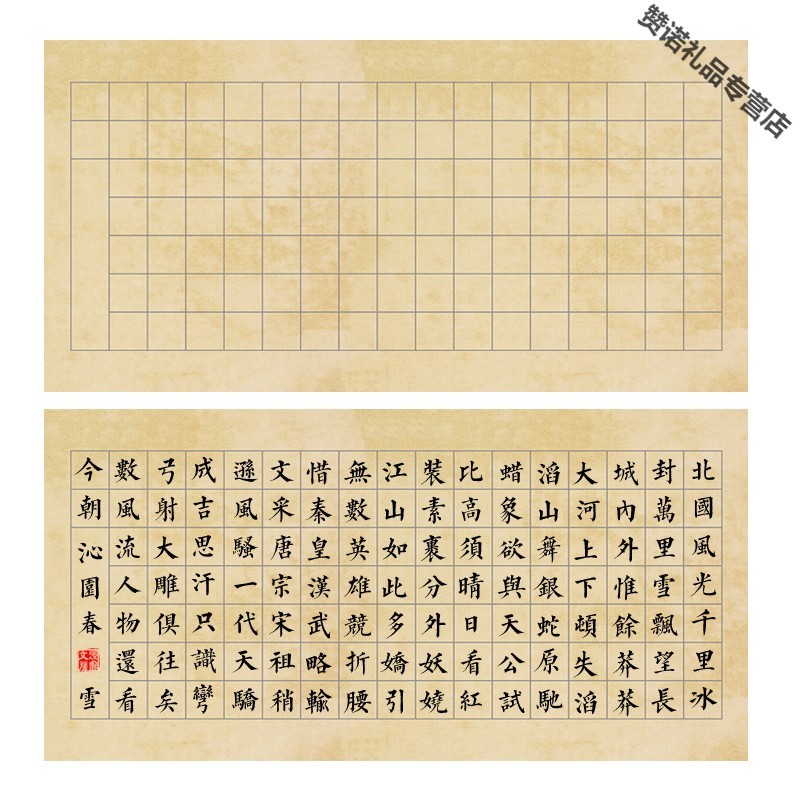 赞诺礼品专营店
北國風光千里冰
封萬里雪飄望長
城內外惟餘莽莽
大河上下頓失滔
滔山舞銀蛇原馳
蜡象欲與天公試
比高須晴日看紅
裝素裹分外妖嬈
江山如此多嬌引
無數英雄競折腰
惜秦皇漢武略輸
文采唐宗宋祖稍
遜風騷一代天驕
成吉思汗只識彎
弓射大雕俱往矣
數風流人物還看
今朝 沁園春 雪